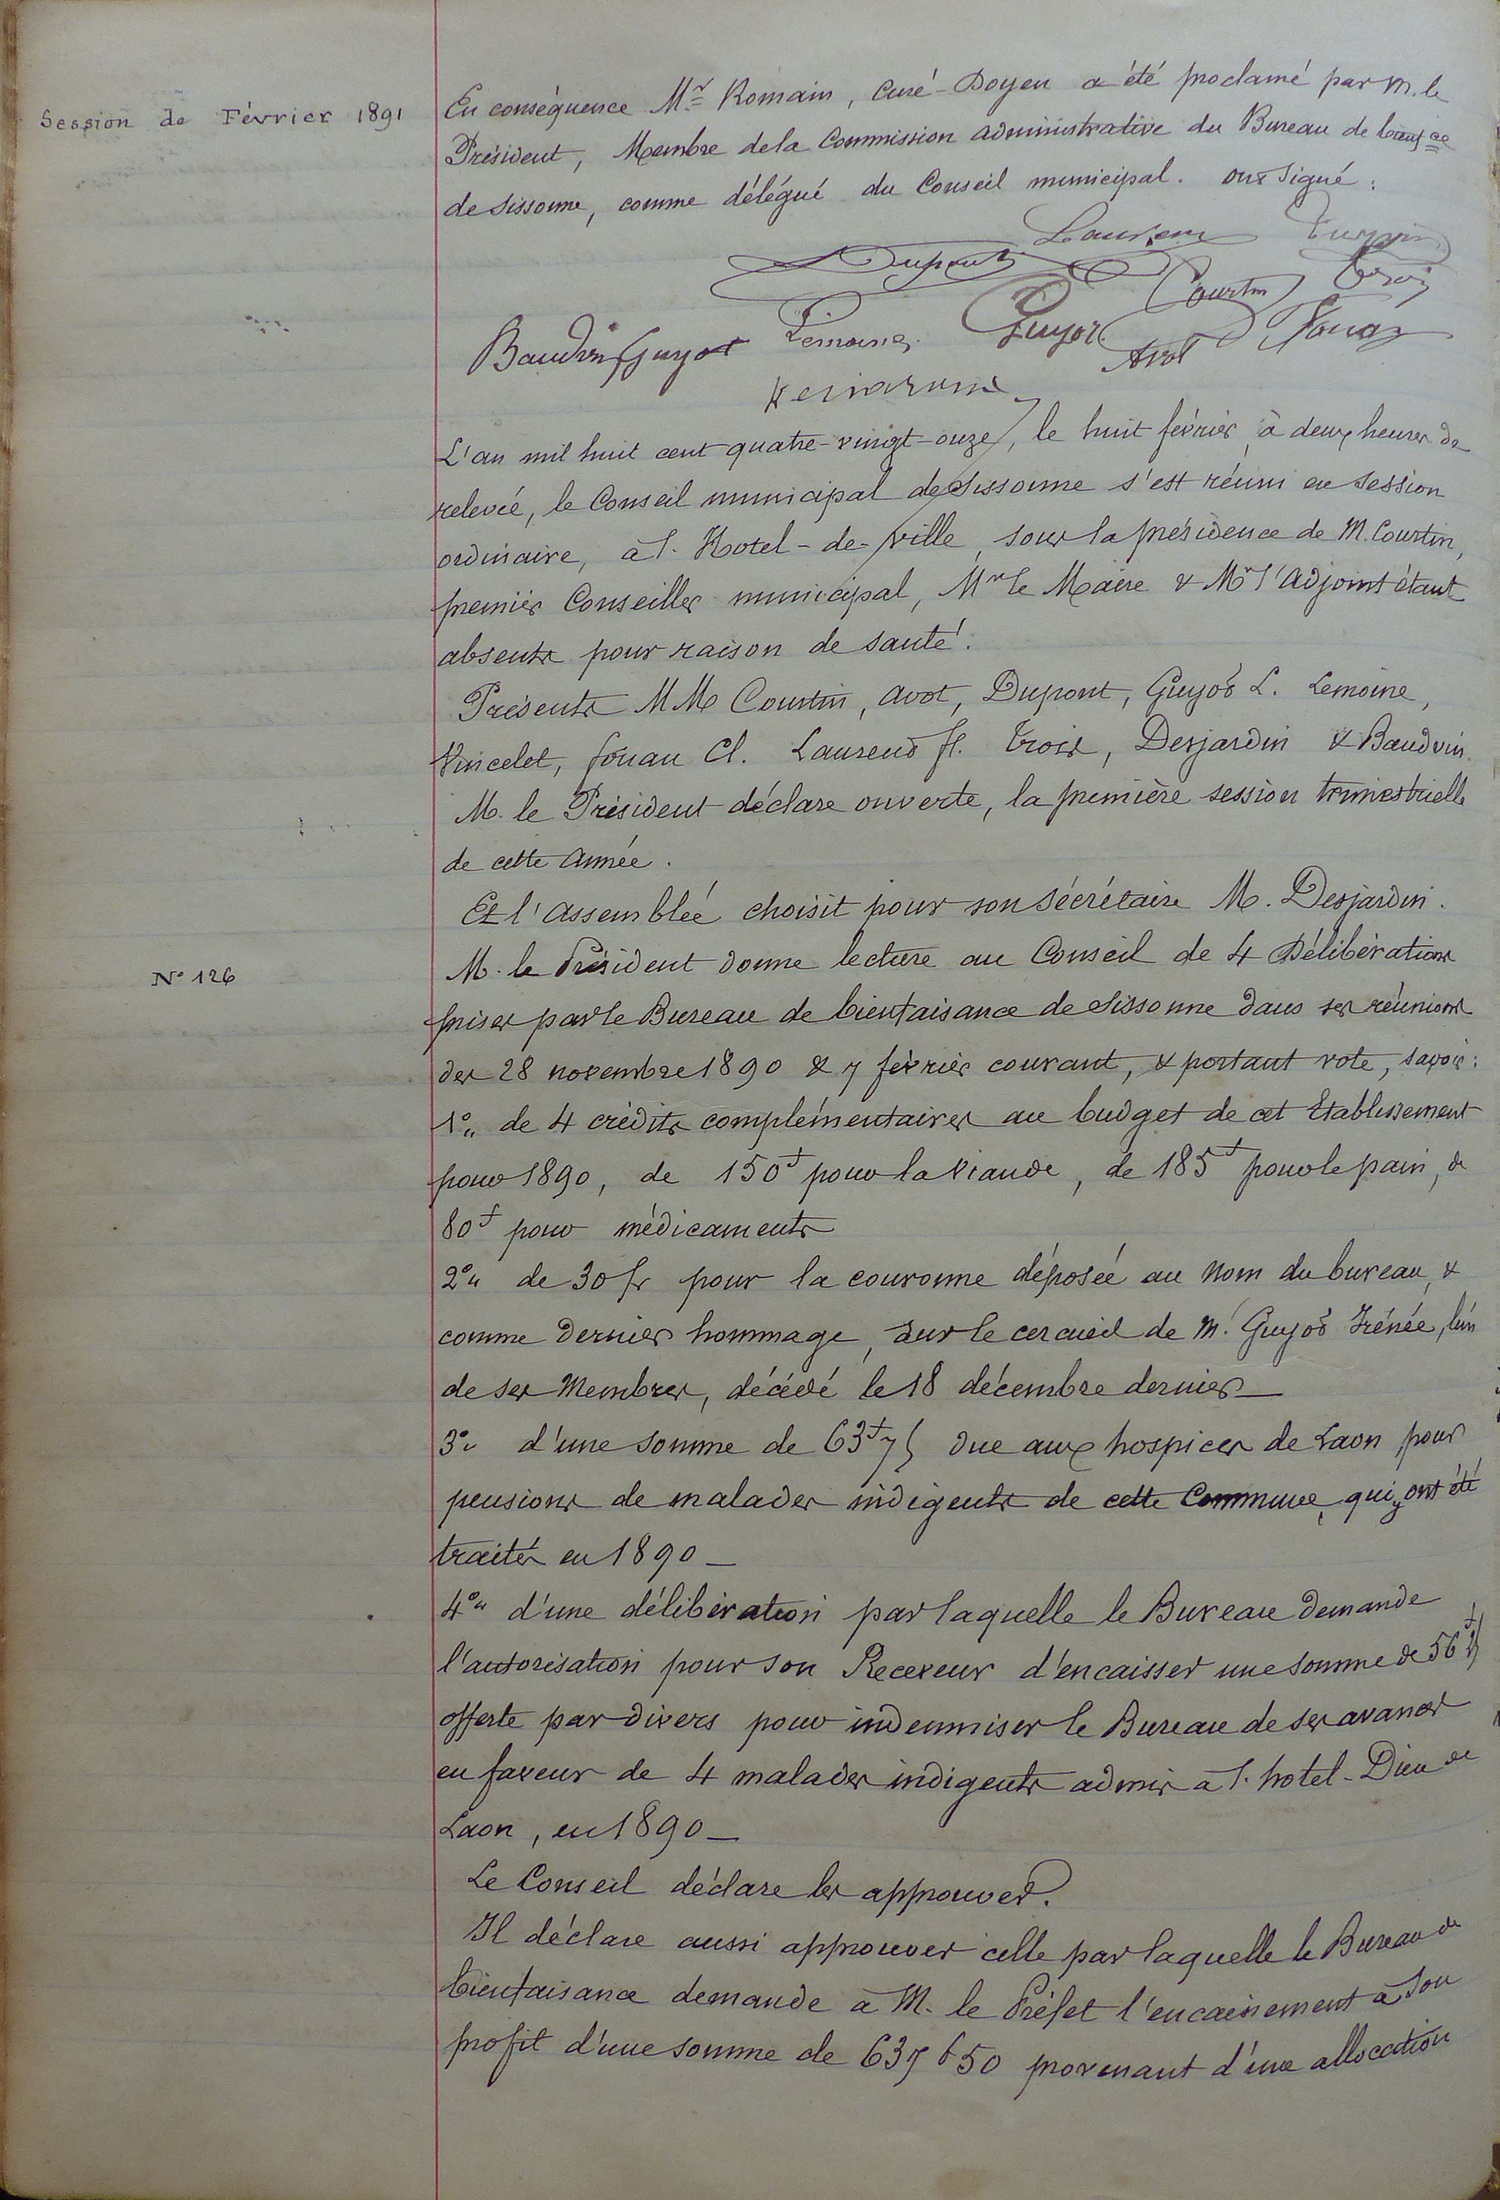 Session de Février 1891
En conséquence Mr Romain, Curé-Doyen a été proclamé par M. le
Président, Membre de la Commission administrative du Bureau de bienfce
de Sissonne, comme délégué du Conseil municipal. Ont signé :
Laurent
Dupont
Courtin Trois
Baudvin Guyot Lemoine Guyot Avot Fouan
Desjardin
L'an mil huit cent quatre-vingt-onze, le huit février, à deux heures de
relevée, le Conseil municipal de Sissonne s'est réuni en session
ordinaire, à l. Hotel-de-Ville, sous la présidence de M. Courtin,
premier Conseiller municipal, Mr le Maire & Mr l'Adjoint étant
absents pour raison de santé.
Présents MM Courtin, Avot, Dupont, Guyot L. Lemoine,
Vincelet, fouan Cl. Laurent fl. Trois, Desjardin & Baudvin.
M. le Président déclare ouverte, la première session trimestrielle
de cette année.
Et l'assemblée choisit pour son Sécrétaire M. Desjardin.
N° 126
M. le Président donne lecture au Conseil de 4 Délibérations
prises par le Bureau de bienfaisance de Sissonne dans ses réunions
des 28 novembre 1890 & 7 février courant, & portant vote, savoir :
1° de 4 crédits complémentaires au budget de cet Etablissement
pour 1890, de 150f pour la viande, de 185f pour le pain, de
80f pour médicaments
2° de 30 fr pour la couronne déposée au nom du bureau, &
comme dernier hommage, sur le cercueil de M. Guyot Irénée, l'un
de ses Membres, décédé le 18 décembre dernier_
3° d'une somme de 63f75 due aux hospices de Laon pour
pensions de malades indigents de cette Commune, qui y ont été
traités en 1890_
4° d'une délibération par laquelle le Bureau demande
l'autorisation pour son Receveur d'encaisser une somme de 56f
offerte par divers pour indemniser le Bureau de ses avances
en faveur de 4 malades indigents admis à l. hotel-Dieu de
Laon, en 1890_
Le Conseil déclare les approuver.
Il déclare aussi approuver celle par laquelle le Bureau de
bienfaisance demande à M. le Préfet l'encaissement à son
profit d'une somme de 637f50 provenant d'une allocation